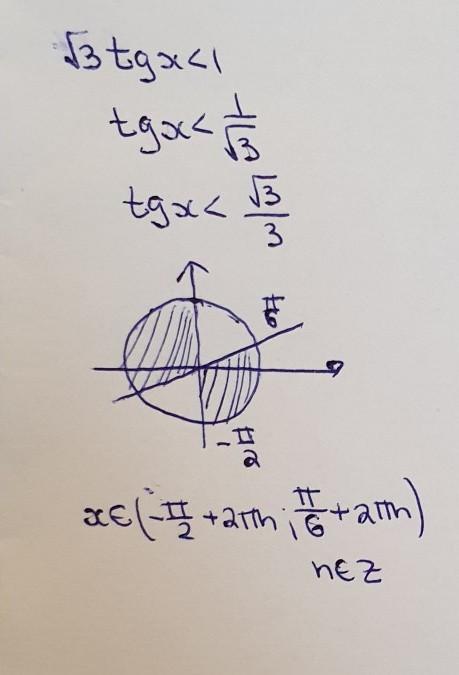 √3 tgx<1
tgx< 1/√3
tgx< √3/3
π/6
-π/2
x∈(-π/2 +2πn; π/6 +2πn)
n∈Z